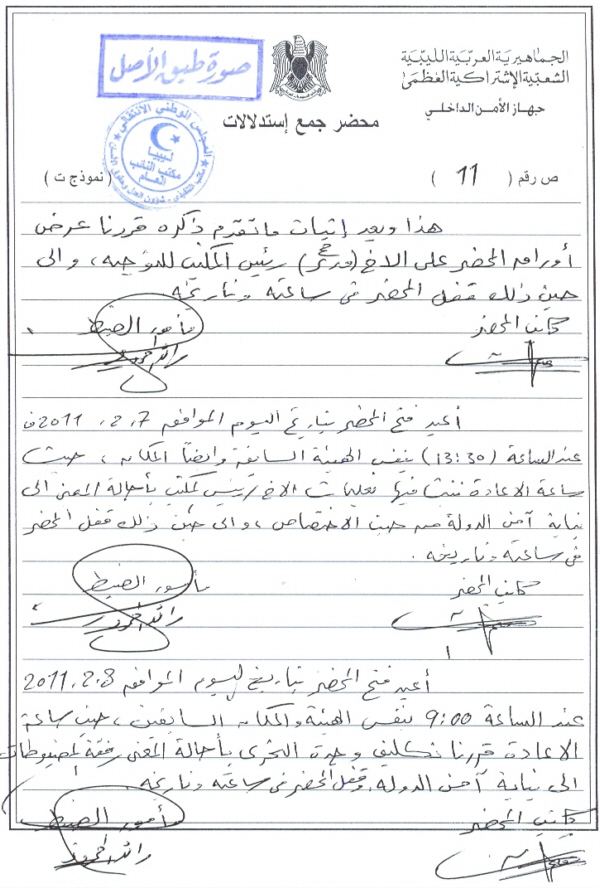 صورة طبق الأصل
الجماهيرية العربية الليبية
الشعبية الإشتراكية العظمى
جهاز الأمن الداخلي
محضر جمع إستدلالات
المجلس الوطني الانتقالي
ليبيا
مكتب النائب
العام
ص رقم ( 11 ) ( نموذج ت )
هذا وبعد إثبات ماتقدم ذكره قررنا عرض
أوراق المحضر على الاخ ( ) رئيس المكتب للتوجيه، والى
حين ذلك قفل المحضر في ساعته وتاريخه
كاتب المحضر مأمور الضبط
رائد
أعيد فتح المحضر بتاريخ اليوم الموافق 7 . 2 . 2011ف
عند الساعة (13:30) بنفس الهيئة السابقة وايضاً المكان ، حيث
ساعة الاعادة فيها تعليمات الاخ رئيس المكتب بأحالة المعني الى
نيابة أمن الدولة من حيث الاختصاص ، والى حين ذلك قفل المحضر
في ساعته وتاريخه .
كاتب المحضر مأمور الضبط
رائد
أعيد فتح المحضر بتاريخ اليوم الموافق 8 . 2 . 2011
عند الساعة 9:00 بنفس الهيئة والمكان السابقين ، حيث ساعة
الاعادة قررنا تكليف وحدة التحرى بأحالة المعني رفقة المضبوطات
الى نيابة أمن الدولة. وقفل المحضر في ساعته وتاريخه.
كاتب المحضر مأمور الضبط
رائد